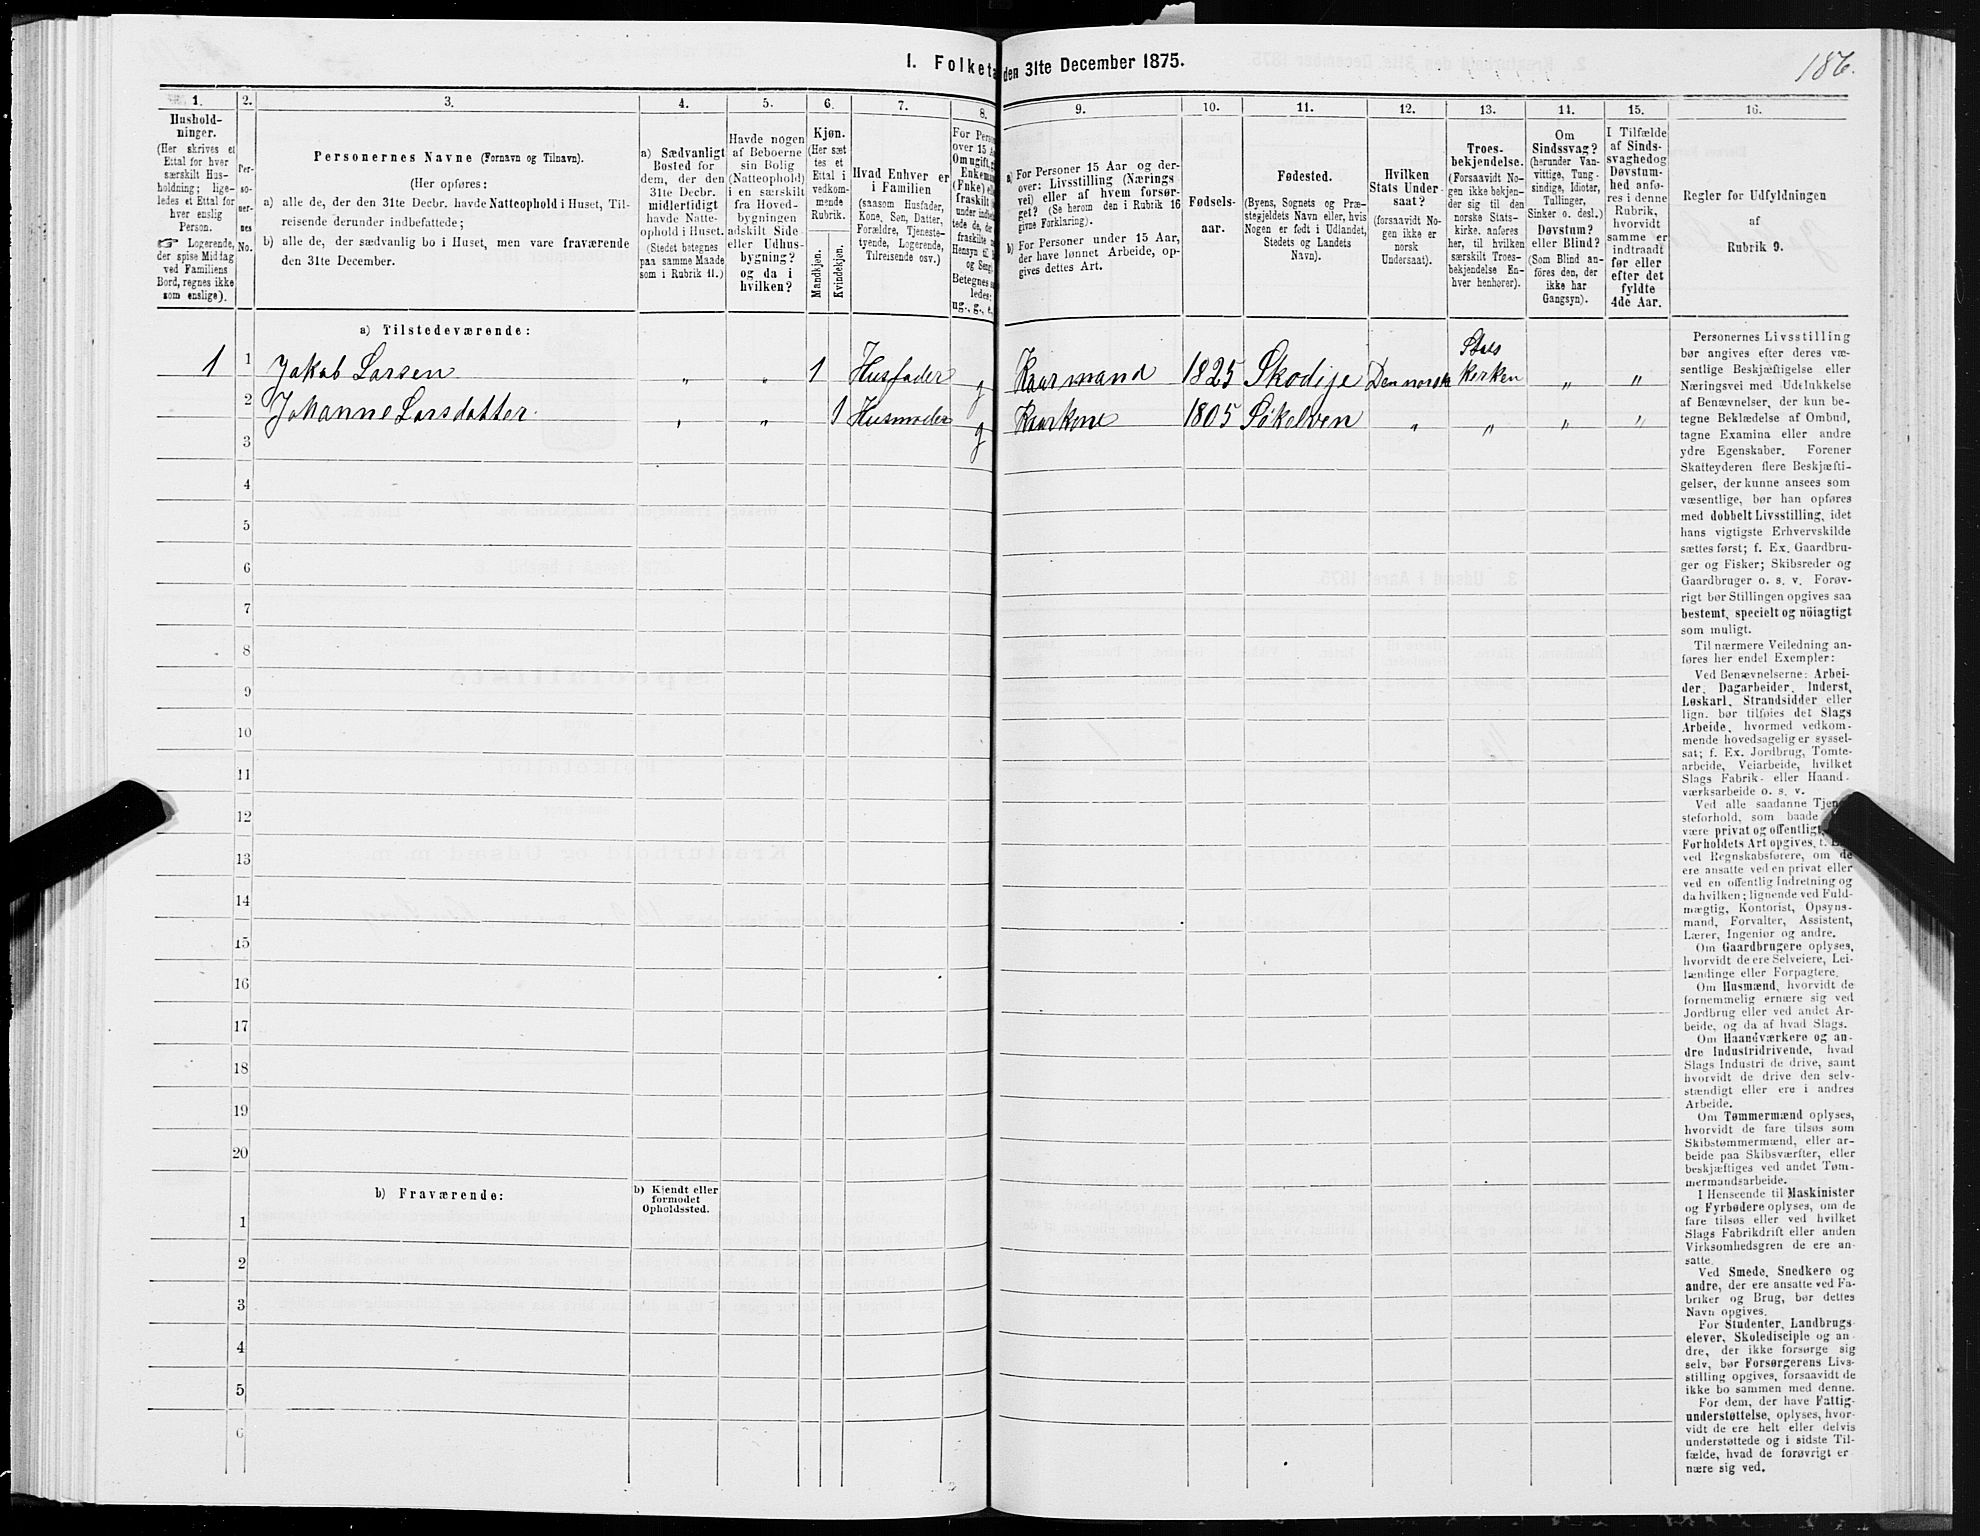 I. Folketæ
den 31te December 1875.
186.
1.
2.
3.
4.
5.
6.
7.
8.
9.
10.
11.
12.
13.
14.
15.
16.
Hushold-
ninger.
(Her skrives et
Ettal for hver
særskilt Hus-
holdning; lige-
ledes et Ettal for
hver enslig
Person.
☞ Logerende,
der spise Middag
ved Familiens
Bord, regnes ikke
som enslige).
Per-
so-
ner-
nes
No.
Personernes Navne (Fornavn og Tilnavn).
(Her opføres:
a) alle de, der den 31te Decbr. havde Natteophold i Huset, Til-
reisende derunder indbefattede;
b) alle de, der sædvanlig bo i Huset, men vare fraværende
den 31te December.
a) Sædvanligt
Bosted for
dem, der den
31te Decbr.
midlertidigt
havde Natte-
ophold i Huset.
(Stedet betegnes
paa samme Maade
som i Rubrik 11.)
Havde nogen
af Beboerne
sin Bolig
(Natteophold)
i en særskilt
fra Hoved-
bygningen
adskilt Side-
eller Udhus-
bygning?
og da i
hvilken?
Kjøn.
(Her sæt
tes et
Ettal i
vedkom-
mende
Rubrik.
Mandkjøn.
Kvindekjøn.
Hvad Enhver er
i Familien
(saasom Husfader,
Kone, Søn, Datter,
Forældre, Tjeneste-
tyende, Logerende,
Tilreisende osv.)
For Perso
over 15 A
Om ugift, g
Enkem
(Enke) e
fraskilt
under indbe
tede de, der
fraskilte
Hensyn til
og Seng
Betegnes s
ledes:
ug., g., e.
a) For Personer 15 Aar og der-
over: Livsstilling (Nærings
vei) eller af hvem forsør-
get? (Se herom den i Rubrik 16
givne Forklaring).
b) For Personer under 15 Aar,
der have lønnet Arbeide, op-
gives dettes Art.
Fødsels-
aar.
Fødested.
(Byens, Sognets og Præ-
stegjeldets Navn eller, hvis
Nogen er født i Udlandet,
Stedets og Landets
Navn).
Hvilken
Stats Under-
saat?
(forsaavidt No-
gen ikke er
norsk
Undersaat).
Troes-
bekjendelse.
(Forsaavidt No-
gen ikke bekjen-
der sig til den
norske Stats-
kirke, anføres
her, til hvilken
særskilt Troes-
bekjendelse En-
hver henhører).
Om
Sindssvag?
(herunder Van-
vittige, Tung-
sindige, Idioter,
Tullinger,
Sinker o. desl.)
Døvstum?
eller Blind?
(Som Blind an-
føres den, der
ikke har
Gangsyn).
I Tilfælde
af Sinds-
svaghed og
Døvstum-
hed anfø-
res i denne
Rubrik,
hvorvidt
samme er
indtraadt
før eller
efter det
fyldte
4de Aar.
Regler for Udfyldningen
af
Rubrik 9.
a) Tilstedeværende:
1 1 Jakob Larsen „ „ 1 Husfader g Kaarmand 1825 Skodije Den norsk Stats kirken „ „
2 Johanne Larsdatter „ „ 1 Husmoder g Kaarkone 1805 Søkelven „ „ „ „
3
4
5
6
7
8
9
10
11
12
13
14
15
16
17
18
19
20
b) Fraværende:
b) Kjendt eller
formodet
Opholdssted.
1
2
3
4
5
6
Personernes Livsstilling
bør angives efter deres væ-
sentlige Beskjæftigelse eller
Næringsvei med Udelukkelse
af Benævnelser, der kun be-
tegne Beklædelse af Ombud,
tagne Examina eller andre
ydre Egenskaber. Forener
Skatteyderen flere Beskjæfti-
gelser, der kunne ansees som
væsentlige, bør han opføres
med dobbelt Livsstilling, idet
hans vigtigste Erhvervskilde
sættes først; f. Ex. Gaardbru-
ger og Fisker; Skibsreder og
Gaardbruger o. s. v. Forøv-
rigt bør Stillingen opgives saa
bestemt, specielt og nöiagtigt
som muligt.
Til nærmere Veiledning an-
føres her endel Exempler:
Ved Benævnelserne: Arbei-
der, Dagarbeider, Inderst,
Løskarl, Strandsidder eller
lign. bør tilføies det Slags
Arbeide, hvormed vedkom-
mende hovedsagelig er syssel-
sat; f. Ex. Jordbrug, Tomte-
arbeide, Veiarbeide, hvilket
Slags Fabrik- eller Haand-
værksarbeide o. s. v.
Ved alle saadanne Tjene
steforhold, som baade
være privat og offentligt,
Forholdets Art opgives, f. Ex.
ved Regnskabsførere, om de
ere ansatte ved en privat eller
ved en offentlig Indretning og
da hvilken; lignende ved Fuld-
mægtig, Kontorist, Opsyns-
mand, Forvalter, Assistent,
Lærer, Ingeniør og andre.
Om Gaardbrugere oplyses,
hvorvidt de ere Selveiere, Lei-
lændinge eller Forpagtere.
Om Husmænd, hvorvidt de
fornemmelig ernære sig ved
Jordbrug eller ved andet Ar-
beide, og da af hvad Slags.
Om Haandværkere og an-
dre Industridrivende, hvad
Slags Industri de drive, samt
hvorvidt de drive den selv-
stændigt eller ere i andres
Arbeide.
Om Tømmermænd oplyses,
hvorvidt de fare tilsøs som
Skibstømmermænd, eller ar-
beide paa Skibsværfter, eller
beskjæftiges ved andet Tøm-
mermandsarbeide.
I Henseende til Maskinister
og Fyrbødere oplyses, om de
fare tilsøs eller ved hvilket
Slags Fabrikdrift eller anden
Virksomhedsgren de ere an-
satte.
Ved Smede, Snedkere og
andre, der ere ansatte ved Fa-
briker og Brug, bør dettes
Navn opgives.
For Studenter, Landbrugs-
elever, Skoledisciple og an-
dre, der ikke forsørge sig
selv, bør Forsørgerens Livs-
stilling opgives, forsaavidt de
ikke bo sammen med denne.
For dem, der have Fattig-
understøttelse, oplyses, hvor-
vidt de ere helt eller delvis
understøttede og i sidste Til-
fælde, hvad de forøvrigt er-
nære sig ved.